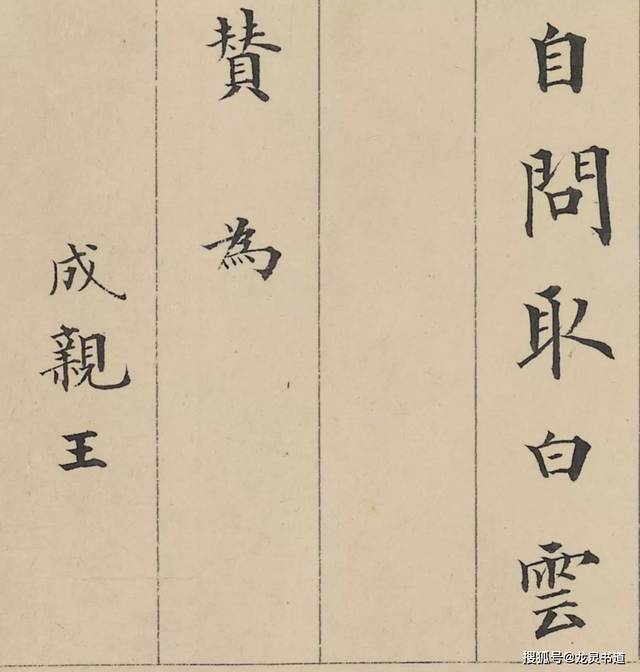 自問取白雲
賛為
成親王
搜狐号@龙灵书道